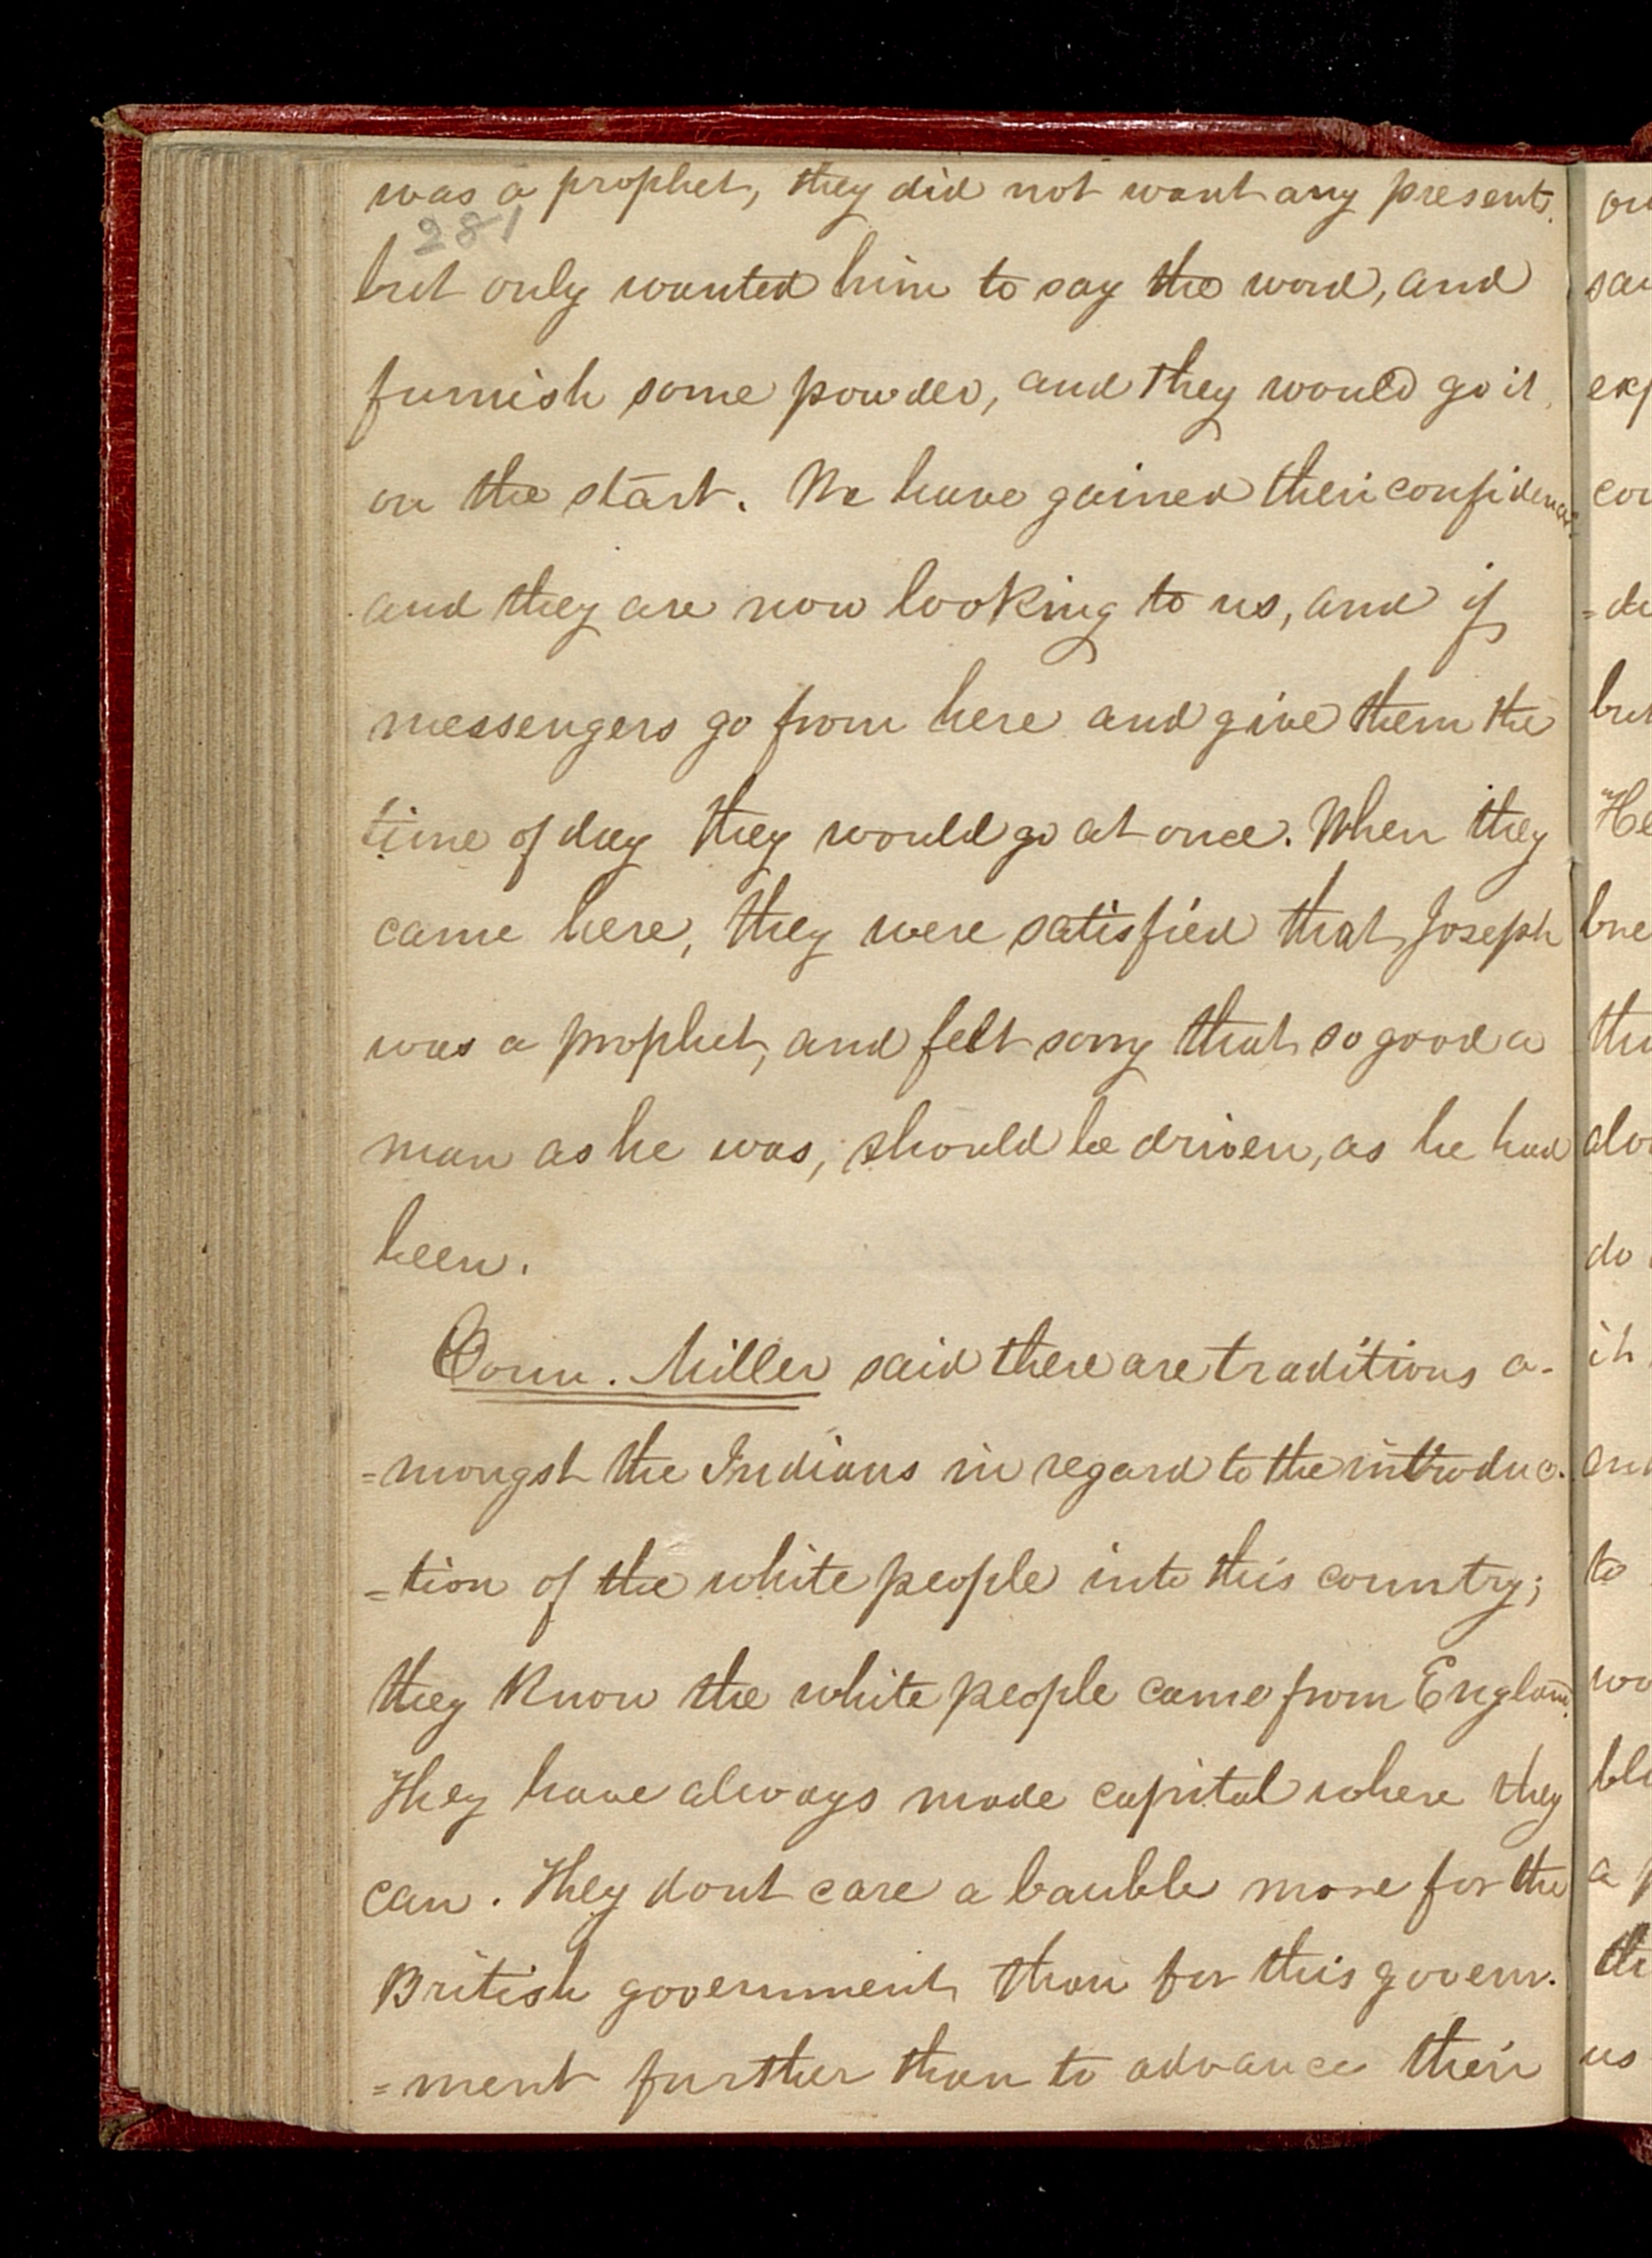 was a prophet, they did not want any presents.
281
but only wanted him to say the word, and
furnish some powder, and they would go it
on the start. We have gained their confidence
and they are now looking to us, and if
messengers go from here and give them the
time of day they would go at once. When they
came here, they were satisfied that Joseph
was a prophet, and felt sorry that so good a
man as he was, should be driven, as he had
been.
Coun. Miller said there are traditions a-
=mongst the Indians in regard to the introduc-
=tion of the white people into this country;
they know the white people came from England.
They have always made capital where they
can. They dont care a bauble more for the
British government than for this govern-
=ment further than to advance their